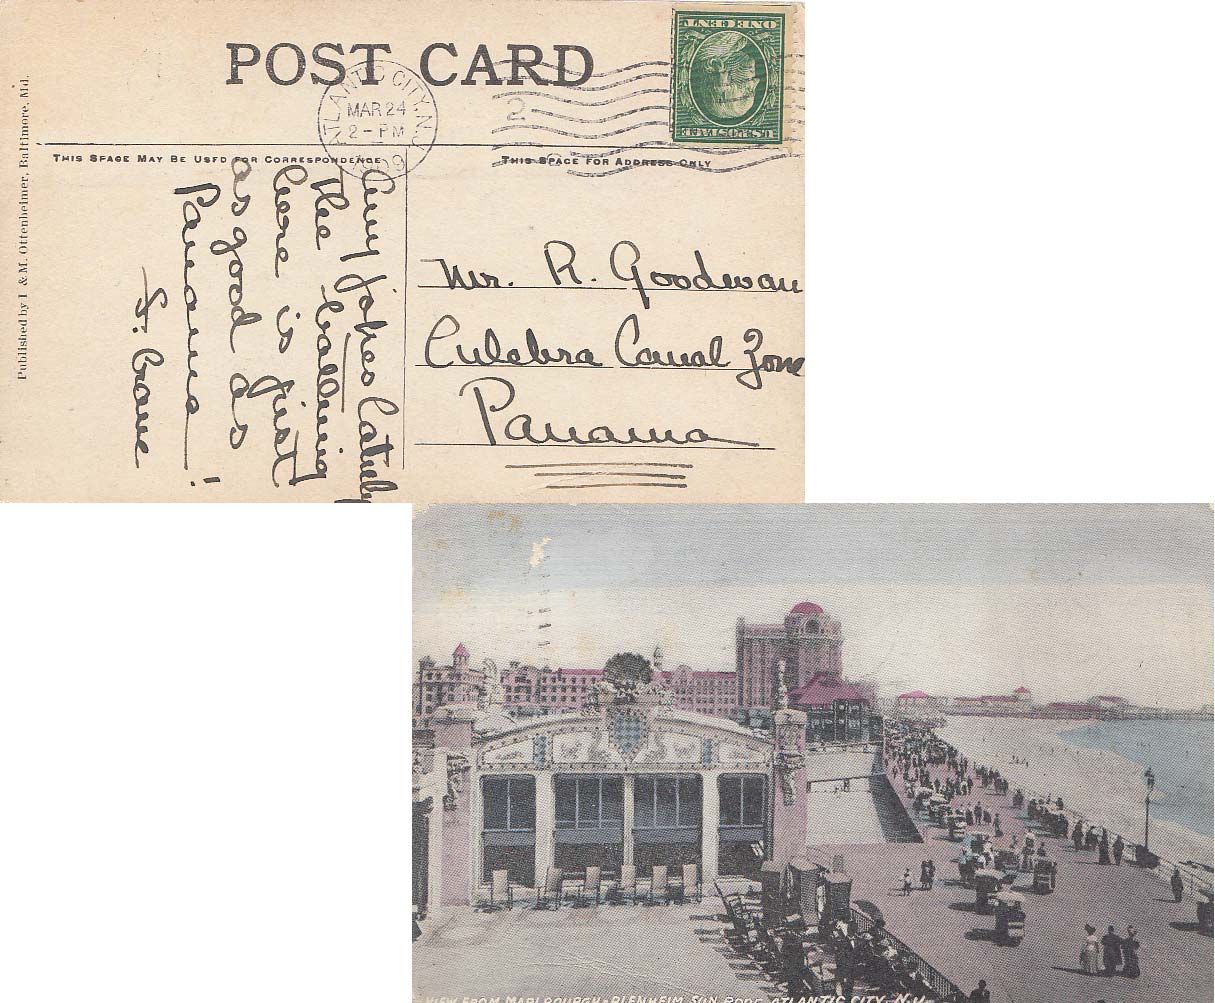 POST CARD
ATLANTIC CITY, N.J.
MAR 24
2 - PM
1909
2
ONE CENT
U.S. POSTAGE
THIS SPACE MAY BE USED FOR CORRESPONDENCE
THIS SPACE FOR ADDRESS ONLY
Published by I & M. Ottenheimer, Baltimore, Md.
Any jokes lately
The bathing
here is just
as good as
Panama!
Mr. R. Goodwan
Culebra Canal Zone
Panama
VIEW FROM MARLBOURGH-BLENHEIM SUN PORC ATLANTIC CITY, N.J.